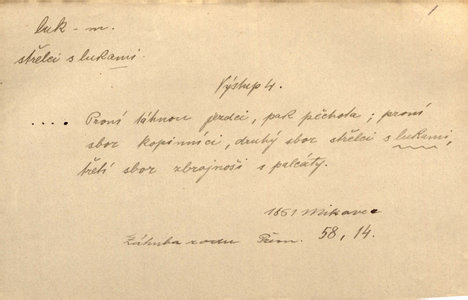 1
luk - m.
střelci s lukami.
Výstup 4.
.... První táhnou jezdci, pak pěchota; první
sbor kopinníci, druhý sbor střelci s lukami,
třetí sbor zbrojnoši s palcáty.
1851 Mikovec
Záhuba rodu Přem. 58, 14.